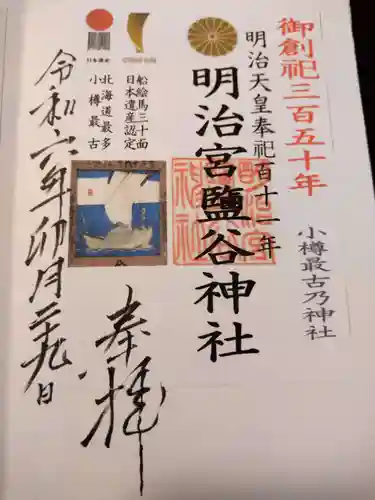 御創祀三百五十年
小樽最古乃神社
明治天皇奉祀百十一年
明治宮鹽谷神社
船絵馬三十面
日本遺産認定
北海道最多
小樽最古
奉拝
令和六年卯月二十九日